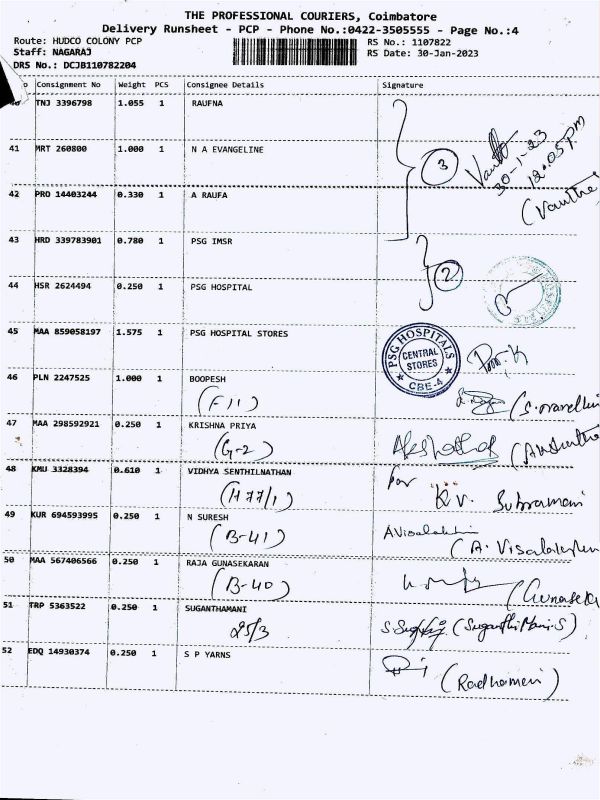 THE PROFESSIONAL COURIERS, Coimbatore
Delivery Runsheet - PCP - Phone No.:0422-3505555 - Page No.:4
Route: HUDCO COLONY PCP
Staff: NAGARAJ
DRS No.: DCJB110782204
RS No.: 1107822
RS Date: 30-Jan-2023
o Consignment No Weight PCS Consignee Details Signature
40 TNJ 3396798 1.055 1 RAUFNA
41 MRT 260800 1.000 1 N A EVANGELINE
3
30-1-23
12.05pm
42 PRO 14403244 0.330 1 A RAUFA
43 HRD 339783901 0.780 1 PSG IMSR
2
44 HSR 2624494 0.250 1 PSG HOSPITAL
45 MAA 859058197 1.575 1 PSG HOSPITAL STORES
PSG HOSPITALS
CENTRAL
STORES
CBE-4
46 PLN 2247525 1.000 1 BOOPESH
(F11)
47 MAA 298592921 0.250 1 KRISHNA PRIYA
(G-2)
48 KMU 3328394 0.610 1 VIDHYA SENTHILNATHAN
(H77/1)
for K.V. Subramani
49 KUR 694593995 0.250 1 N SURESH
(B-41)
50 MAA 567406566 0.250 1 RAJA GUNASEKARAN
(B-40)
(Gunasek
51 TRP 5363522 0.250 1 SUGANTHAMANI
25/3
(Suganthi Mani.S)
52 EDQ 14930374 0.250 1 S P YARNS
(Radhamani)